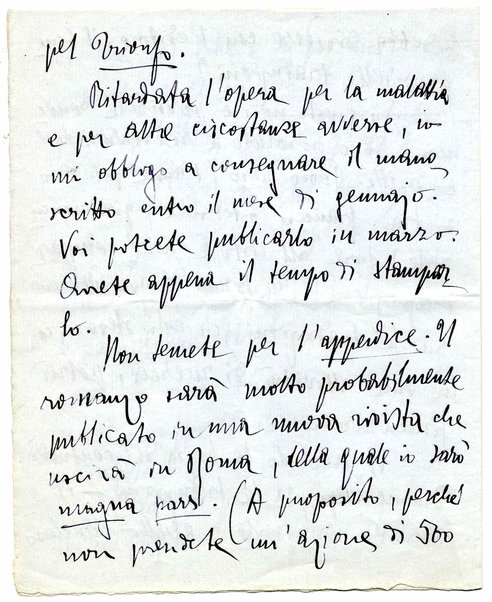 pel Trionfo.
Ritardata l'opera per la malattia
e per altre circostanze avverse, io
mi obbligo a consegnare il mano
scritto entro il mese di gennajo.
Voi potrete publicarlo in marzo.
Avrete appena il tempo di stampar
lo.
Non temete per l'appendice. Il
romanzo sarà molto probabilmente
publicato in una nuova rivista che
uscirà in Roma, della quale io sarò
magna pars. (A proposito, perché
non prendete un'azione di 500